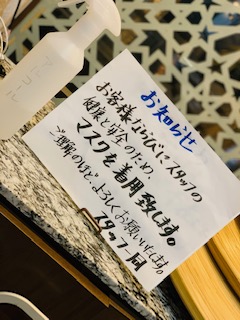 アルコール
お知らせ
お客様ならびにスタッフの
健康と安全のため、
マスクを着用致します。
ご理解のほど、よろしくお願いいたします。
スタッフ一同